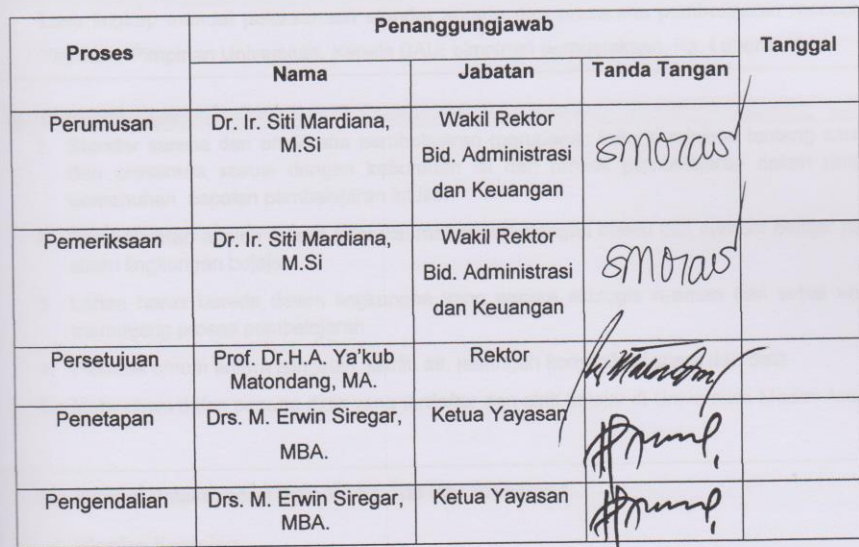 Proses
Penanggungjawab
Tanggal
Nama
Jabatan
Tanda Tangan
Perumusan
Dr. Ir. Siti Mardiana,
M.Si
Wakil Rektor
Bid. Administrasi
dan Keuangan
Pemeriksaan
Dr. Ir. Siti Mardiana,
M.Si
Wakil Rektor
Bid. Administrasi
dan Keuangan
Persetujuan
Prof. Dr.H.A. Ya'kub
Matondang, MA.
Rektor
Penetapan
Drs. M. Erwin Siregar,
MBA.
Ketua Yayasan
Pengendalian
Drs. M. Erwin Siregar,
MBA.
Ketua Yayasan